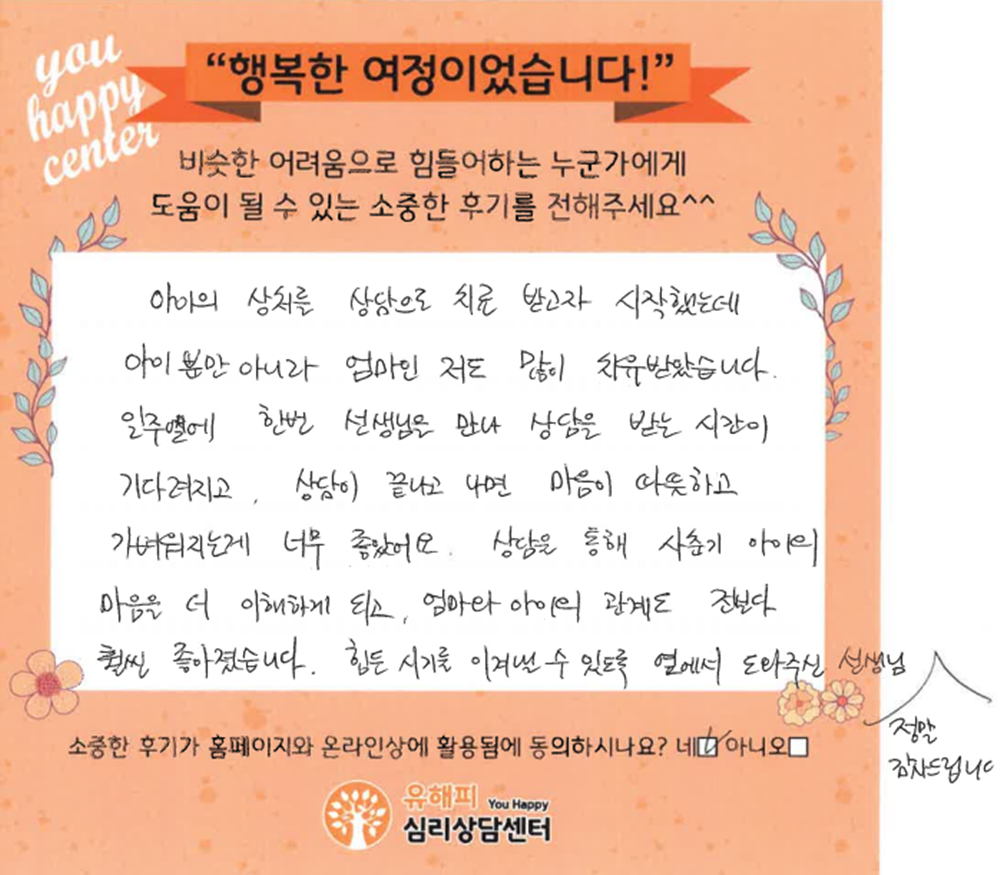 you
happy
center
“행복한 여정이었습니다!”
비슷한 어려움으로 힘들어하는 누군가에게
도움이 될 수 있는 소중한 후기를 전해주세요^^
아이의 상처를 상담으로 치료 받고자 시작했는데
아이 뿐만 아니라 엄마인 저도 많이 치유받았습니다.
일주일에 한번 선생님을 만나 상담을 받는 시간이
기다려지고, 상담이 끝나고 나면 마음이 따뜻하고
가벼워지는게 너무 좋았어요. 상담을 통해 사춘기 아이의
마음을 더 이해하게 되고, 엄마와 아이의 관계도 전보다
훨씬 좋아졌습니다. 힘든 시기를 이겨낼 수 있도록 옆에서 도와주신 선생님
정말
감사드립니다
소중한 후기가 홈페이지와 온라인상에 활용됨에 동의하시나요? 네 아니오
유해피 You Happy
심리상담센터